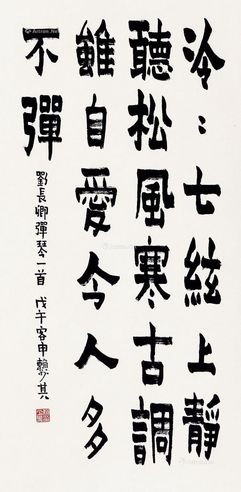 泠〻七絃上靜
聽松風寒古調
雖自愛今人多
不彈
劉長卿彈琴一首 戊午客申賴少其